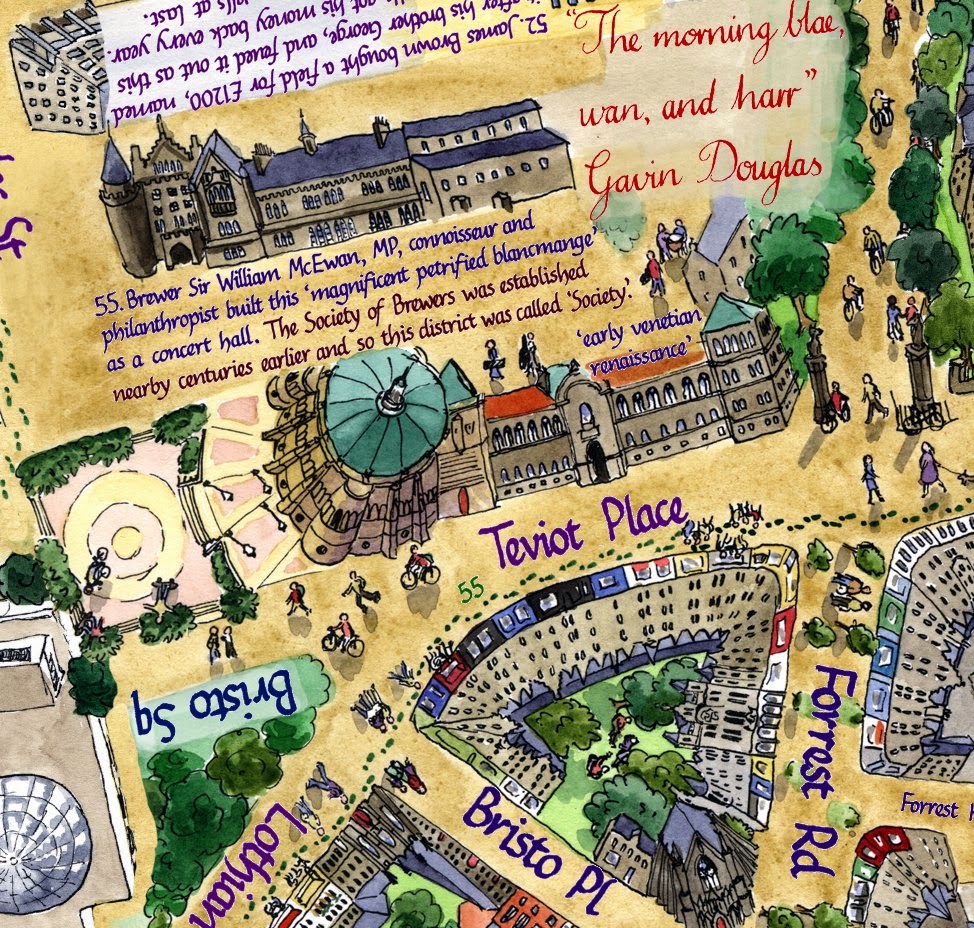 52. James Brown bought a field for £1200, named
after his brother George, and feued it out as this
got his money back every year.
at last.
"The morning blae,
wan, and harr"
Gavin Douglas
St
55. Brewer Sir William McEwan, MP, connoisseur and
philanthropist built this 'magnificent petrified blancmange'
as a concert hall. The Society of Brewers was established
nearby centuries earlier and so this district was called 'Society'.
'early venetian
renaissance'
Teviot Place
55
Bristo Sq
Forrest Rd
Forrest
Bristo Pl
Lothian